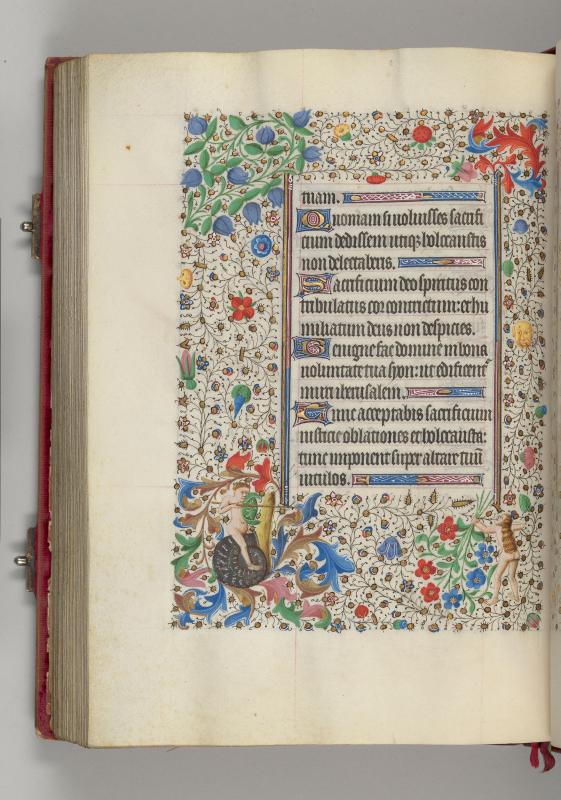 tuam.
Quoniam si voluisses sacrifi
cium dedissem utiqz holocaustis
non delectaberis.
Sacrificium deo spiritus con
tribulatus cor contritum: et hu
miliatum deus non despicies.
Benigne fac domine in bona
voluntate tua syon: ut edificent᷑
muri iherusalem.
Tunc acceptabis sacrificium
iusticie oblationes et holocausta:
tunc imponent super altare tuū
vitulos.